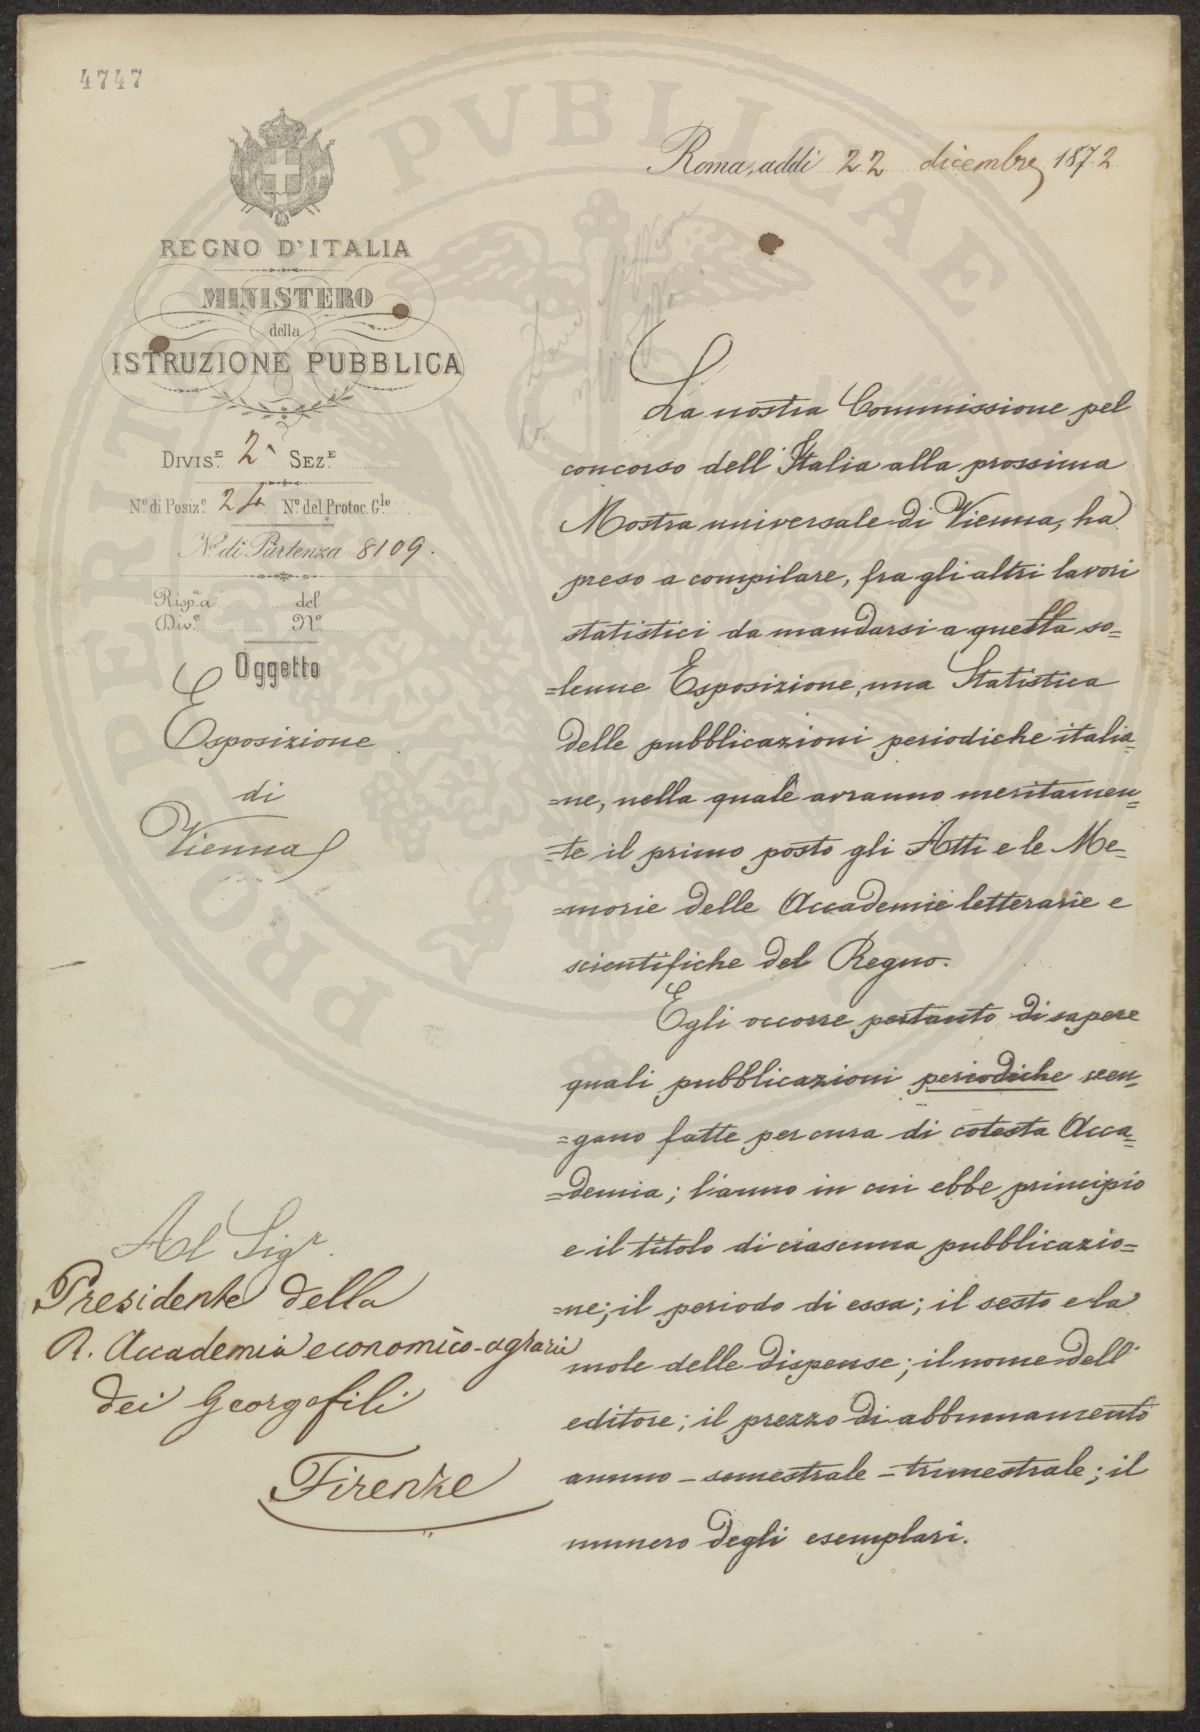 4747
Roma, addì 22 dicembre 1872
REGNO D'ITALIA
MINISTERO
della
ISTRUZIONE PUBBLICA
DIVIS.E 2ª SEZ.E
N.o di Posiz.e 24 N.o del Protoc. G.le
N.o di Partenza 8109.
Risp.a a del
Div.e N.o
Oggetto
Esposizione
di
Vienna
La nostra Commissione pel
concorso dell'Italia alla prossima
Mostra universale di Vienna, ha
preso a compilare, fra gli altri lavori
statistici da mandarsi a quella so=
=lenne Esposizione, una Statistica
delle pubblicazioni periodiche italia=
=ne, nella quale avranno meritamen=
=te il primo posto gli Atti e le Me=
=morie delle Accademie letterarie e
scientifiche del Regno.
Egli occorre pertanto di sapere
quali pubblicazioni periodiche ven=
=gano fatte per cura di cotesta Acca=
=demia; l'anno in cui ebbe principio
e il titolo di ciascuna pubblicazio=
=ne; il periodo di essa; il sesto e la
mole delle dispense; il nome dell'
editore; il prezzo di abbuonamento
annuo – semestrale – trimestrale; il
numero degli esemplari.
Al Sigr.
Presidente della
R. Accademia economico-agraria
dei Georgofili
Firenze
PROPERTY PVBLICAE